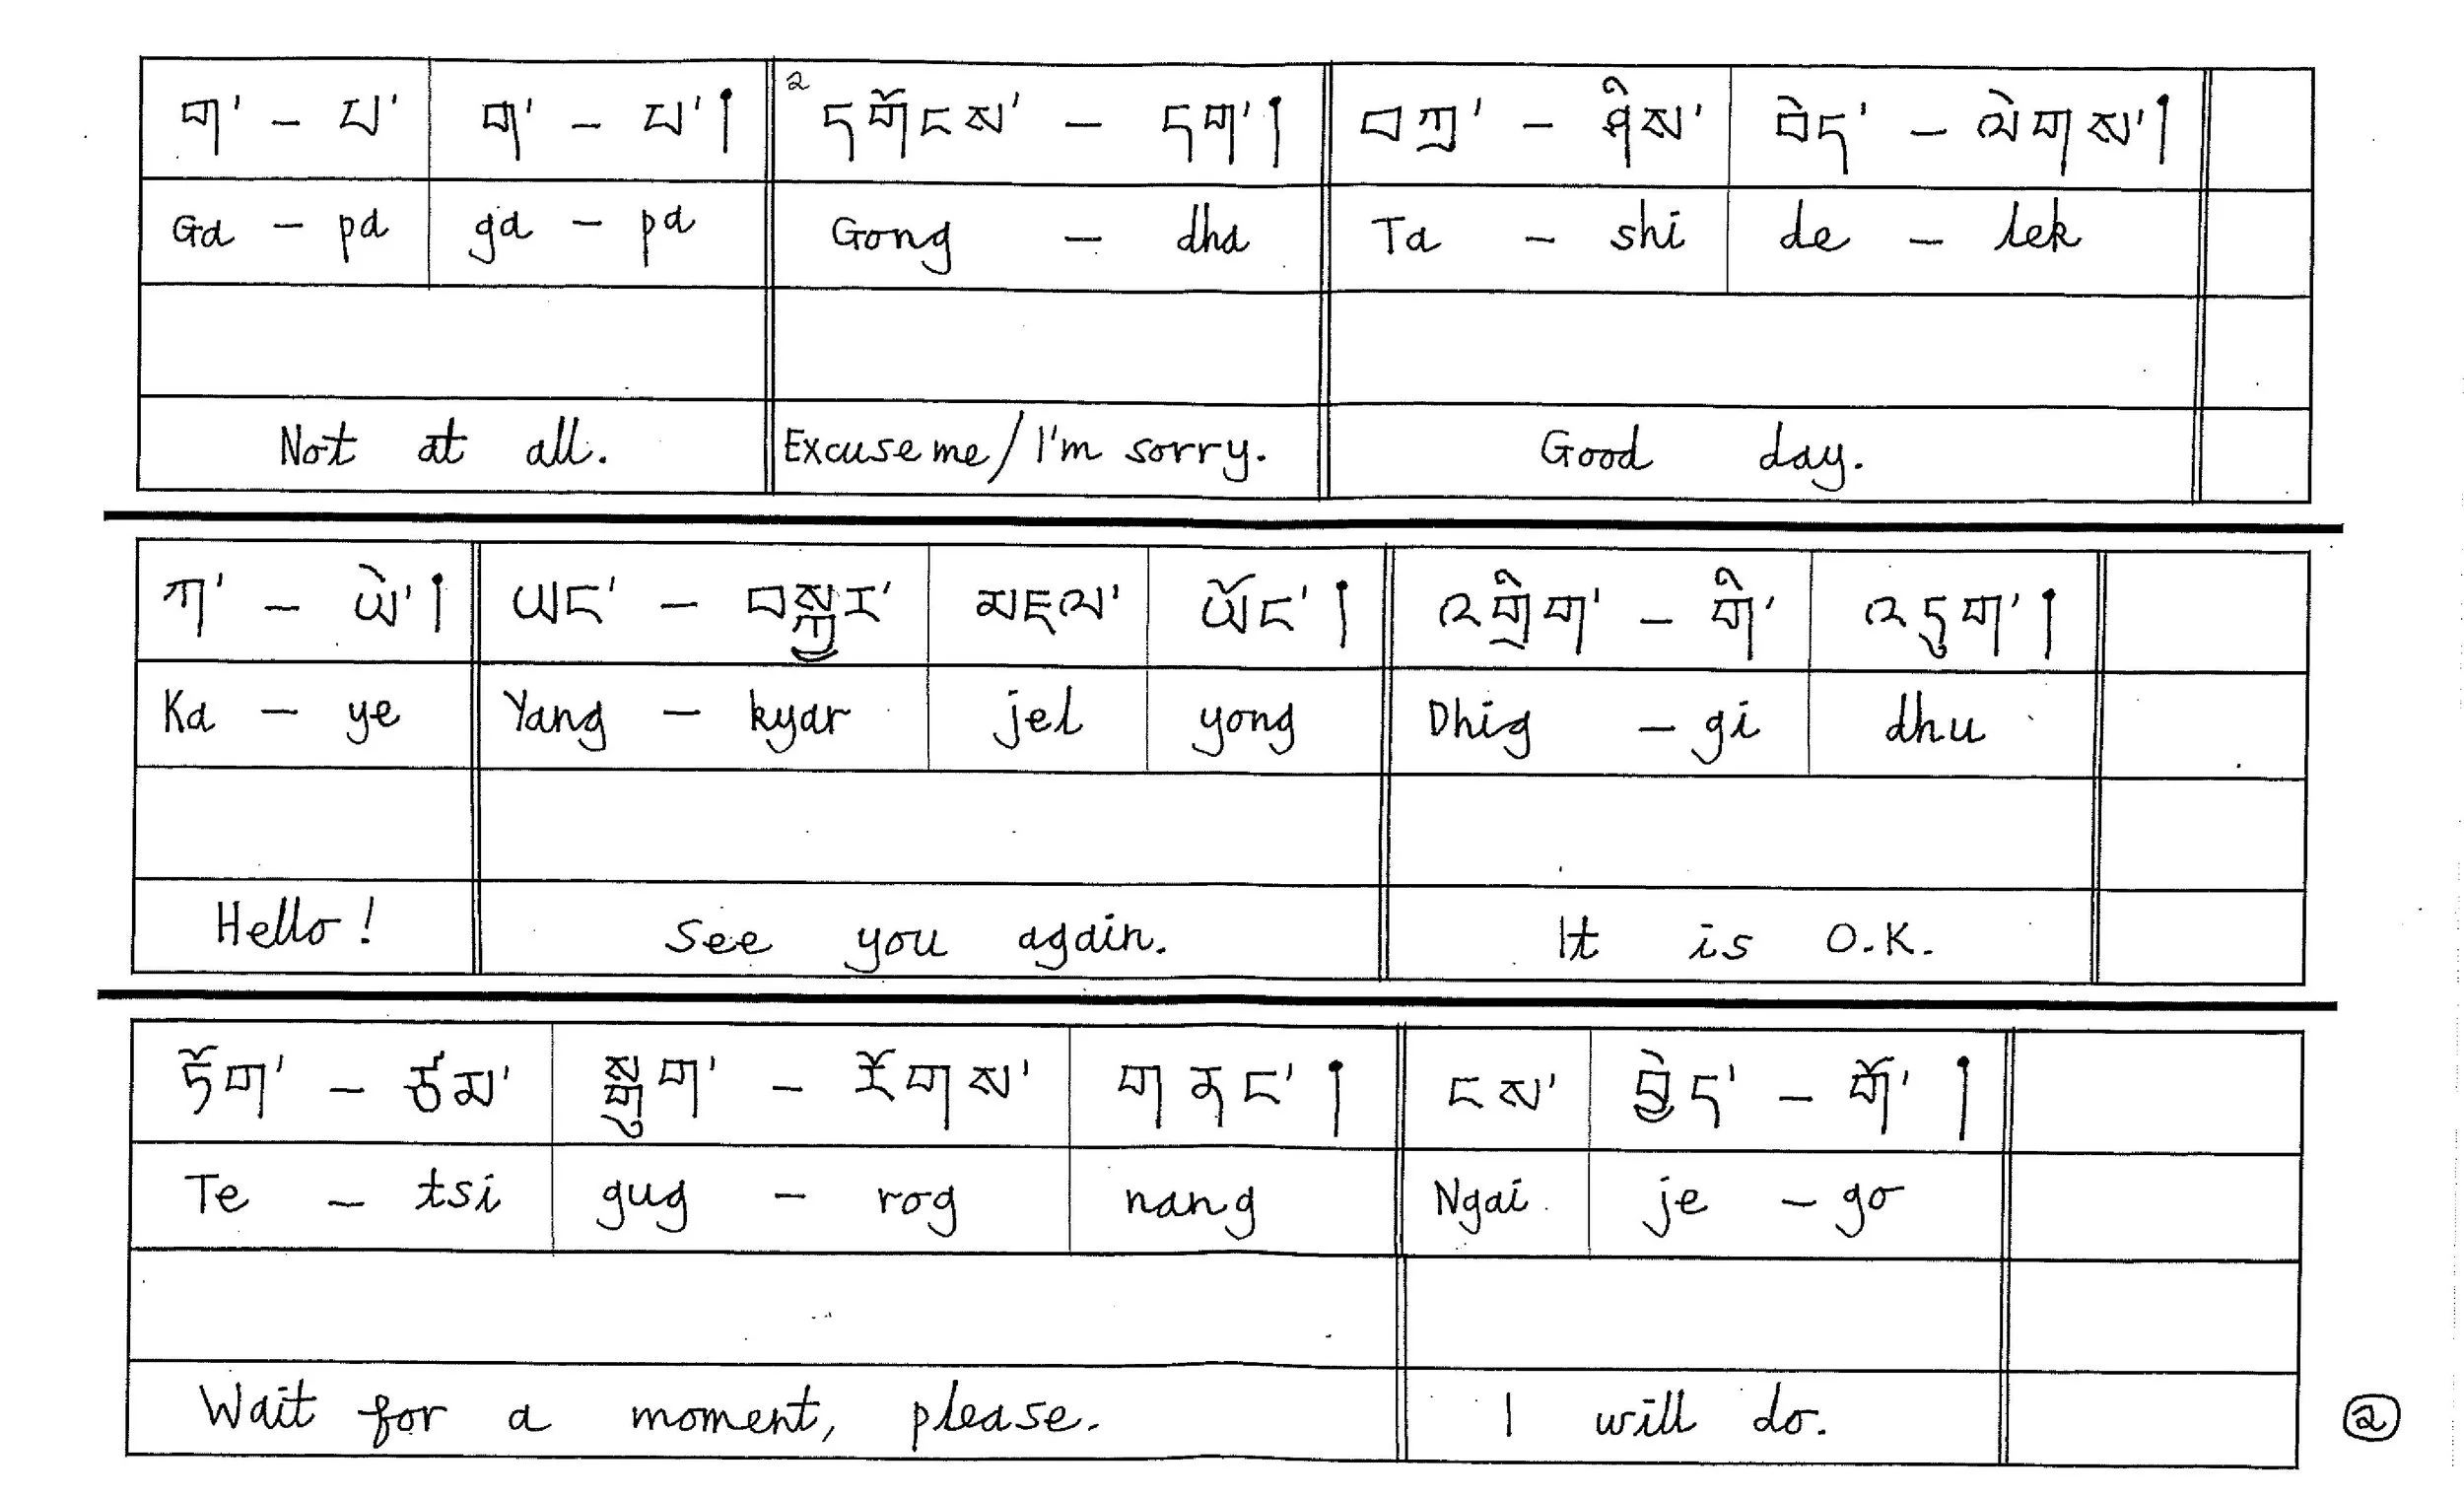 ག་ - པ་ ག་ - པ། 2 དགོངས་ - དག། བཀྲ་ - ཤིས་ བདེ་ - ལེགས།
Ga - pa ga - pa Gong - dha Ta - shi de - lek
Not at all. Excuse me/I'm sorry. Good day.
ཀ་ - ཡེ། ཡང་ - བསྐྱར་ མཇལ་ ཡོང་། འགྲིག་ - གི་ འདུག།
Ka - ye Yang - kyar jel yong Dhig - gi dhu
Hello! See you again. It is O.K.
ཏོག་ - ཙམ་ སྒུག་ - རོགས་ གནང་། ངས་ བྱེད་ - གོ །
Te - tsi gug - rog nang Ngai je - go
Wait for a moment, please. I will do.
2